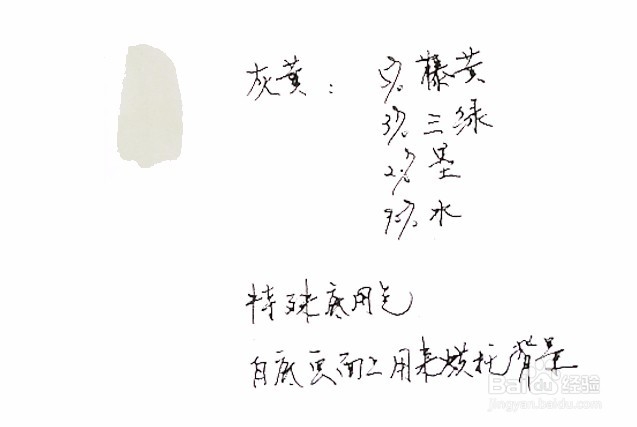 灰黄： 5% 藤黄
3% 三绿
2% 墨
95% 水
特殊底用色
白底画面上用来烘托背景
Baidu 经验
jingyan.baidu.com